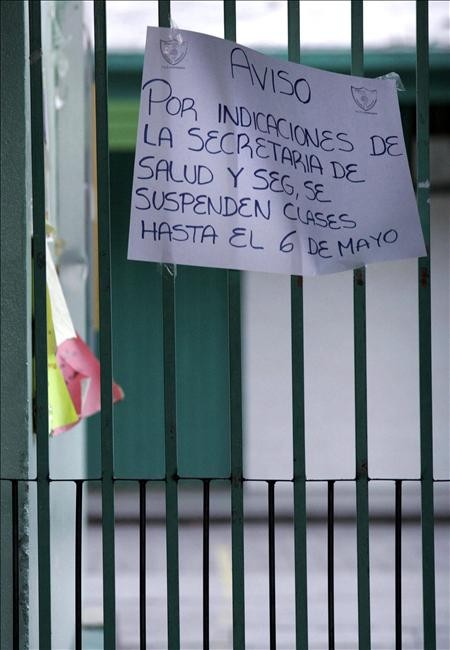 AVISO
POR INDICACIONES DE
LA SECRETARIA DE
SALUD Y SEG, SE
SUSPENDEN CLASES
HASTA EL 6 DE MAYO